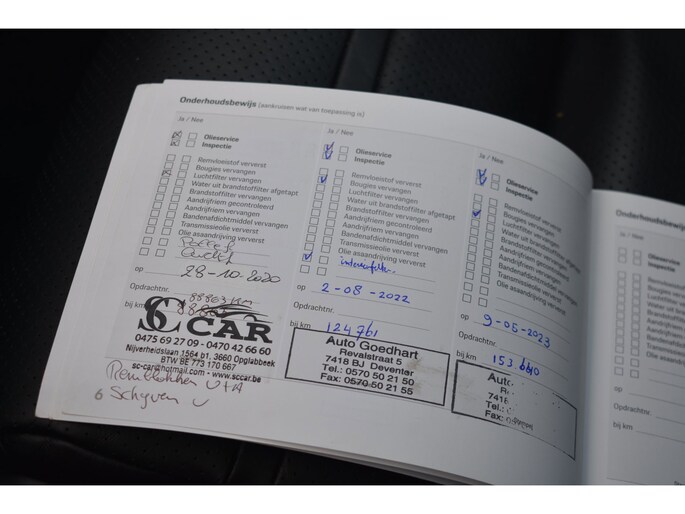 Onderhoudsbewijs (aankruisen wat van toepassing is)
Ja / Nee
Olieservice
Inspectie
Remvloeistof ververst
Bougies vervangen
Luchtfilter vervangen
Water uit brandstoffilter afgetapt
Brandstoffilter vervangen
Aandrijfriem gecontroleerd
Aandrijfriem vervangen
Bandenafdichtmiddel vervangen
Transmissieolie ververst
Olie asaandrijving ververst
op 28-10-2020
Opdrachtnr.
88863 KM
bij km
SC CAR
0475 69 27 09 - 0470 42 66 60
Nijverheidslaan 1564 b1, 3660 Opglabbeek
BTW BE 773 170 667
sc-car@hotmail.com - www.sccar.be
Remblokken V+A
Schijven V
6
Ja / Nee
Olieservice
Inspectie
Remvloeistof ververst
Bougies vervangen
Luchtfilter vervangen
Water uit brandstoffilter afgetapt
Brandstoffilter vervangen
Aandrijfriem gecontroleerd
Aandrijfriem vervangen
Bandenafdichtmiddel vervangen
Transmissieolie ververst
Olie asaandrijving ververst
interieurfilter
op 2-08-2022
Opdrachtnr.
bij km 124761
Auto Goedhart
Revalstraat 5
7418 BJ Deventer
Tel.: 0570 50 21 50
Fax: 0570 50 21 55
Ja / Nee
Olieservice
Inspectie
Remvloeistof ververst
Bougies vervangen
Luchtfilter vervangen
Water uit brandstoffilter
Brandstoffilter vervangen
Aandrijfriem
Aandrijfriem
Bandenafdichtmiddel
Transmissieolie
Olie asaandrijving ververst
op 9-05-2023
Opdrachtnr.
bij km 153 640
Auto
7418
Tel.:
Fax: 0570
Onderhoudsbewijs
Ja / Nee
op
Opdrachtnr.
bij km